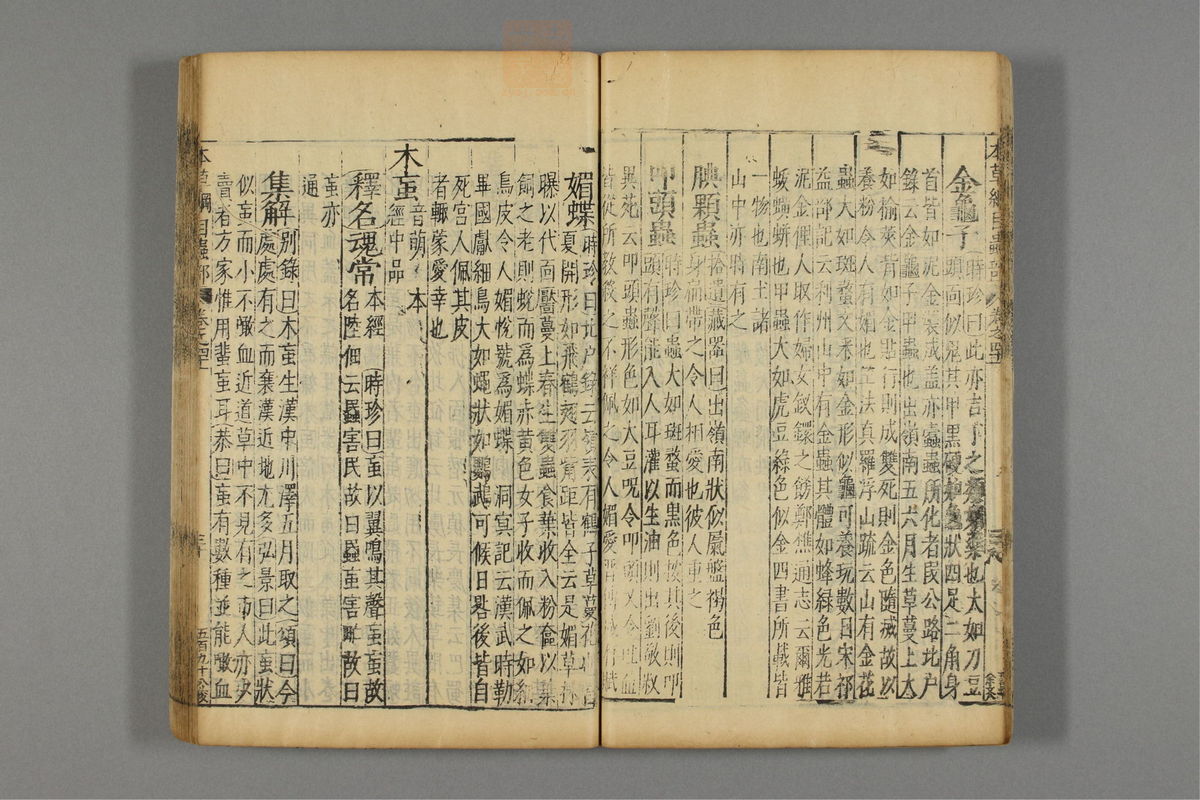 本草綱目蟲部
金龜子時珍曰此亦吉丁之類媚藥也大如刀豆
頭面似鬼其甲黑硬如龜狀四足二角身
首皆如泥金裝成蓋亦蠹蟲所化者段公路北戶
錄云金龜子甲蟲也出嶺南五六月生草蔓上大
如榆莢背如金貼行則成雙死則金色隨滅故以
養粉令人有媚也竺法真羅浮山疏云山有金花
蟲大如斑蝥文采如金形似龜可養玩數日宋祁
益部記云利州山中有金蟲其體如蜂綠色光若
泥金俚人取作婦女釵鐶之飾鄭樵通志云爾雅
蛂蟥蛢也甲蟲大如虎豆綠色似金四書所載皆
一物也南土諸
山中亦時有之
腆顆蟲拾遺藏器曰出嶺南狀似屭盤褐色
身扁帶之令人相愛也彼人重之
叩頭蟲時珍曰蟲大如斑蝥而黑色按其後則叩
頭有聲能入人耳灌以生油則出劉敬叔
異苑云叩頭蟲形色如大豆呪令叩頭又令吐血
皆從所教殺之不祥佩之令人媚愛晉傅咸有賦
媚蝶時珍曰北戶錄云嶺表有鶴子草蔓花也
夏開形如飛鶴翅羽觜距皆全云是媚草采
曝以代面靨蔓上春生雙蟲食葉收入粉奩以
飼之老則蛻而爲蝶赤黃色女子收而佩之如細
鳥皮令人媚悅號爲媚蝶 洞冥記云漢武時勒
畢國獻細鳥大如蠅狀如鸚鵡可候日晷後皆自
死宮人佩其皮
者輒蒙愛幸也
木䖟音萌 本
經中品
釋名魂常本經 時珍曰䖟以翼鳴其聲䖟䖟故
名陸佃云蟁害民故曰蟁䖟害甿故曰
䖟亦
通
集解別錄曰木䖟生漢中川澤五月取之頌曰今
處處有之而襄漢近地尤多弘景曰此䖟狀
似䖟而小不噉血近道草中不見有之市人亦少
賣者方家惟用蜚䖟耳恭曰䖟有數種並能噉血
本草綱目蟲部